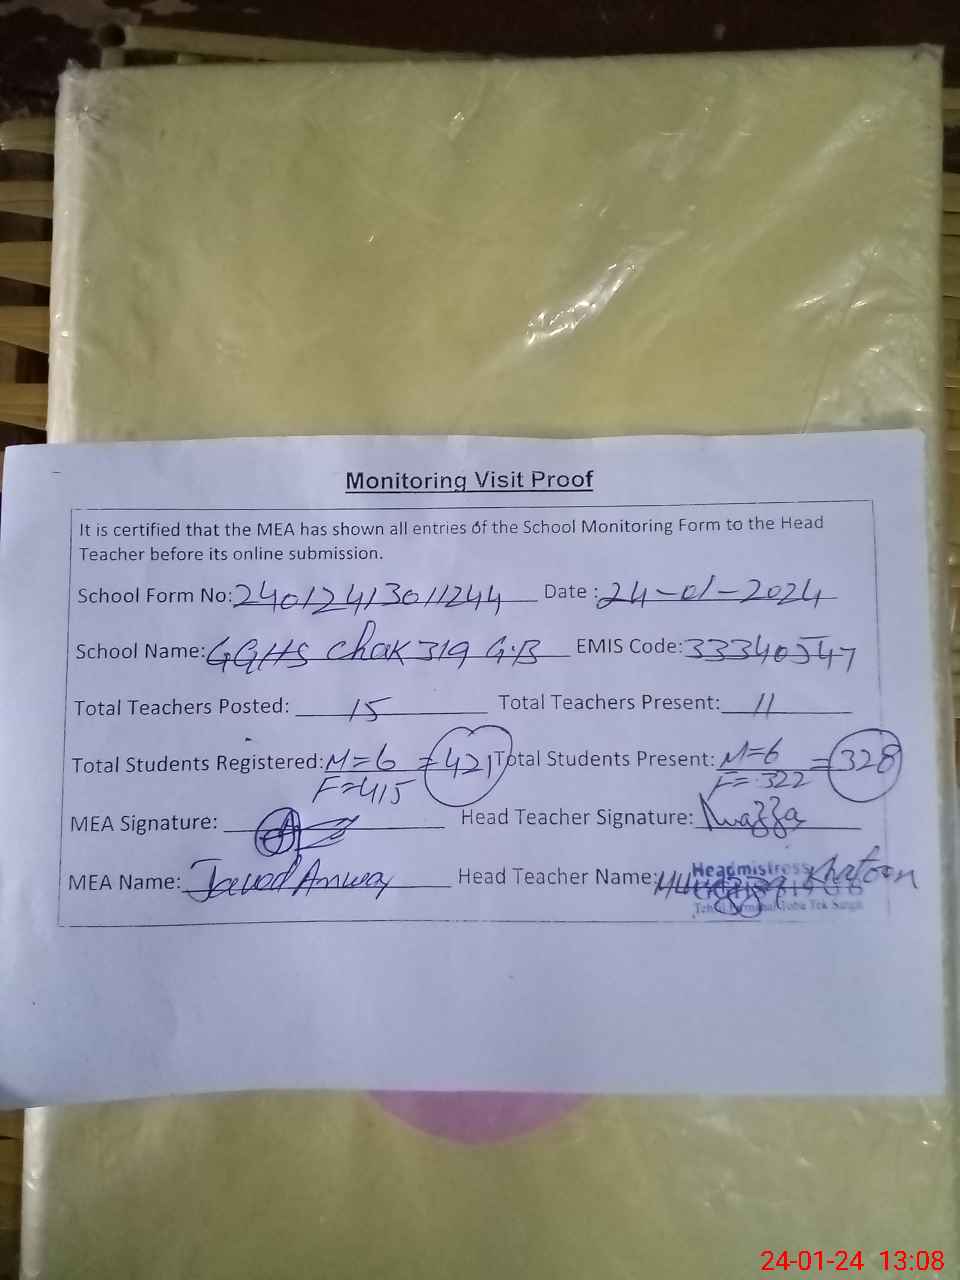 Monitoring Visit Proof
It is certified that the MEA has shown all entries of the School Monitoring Form to the Head
Teacher before its online submission.
School Form No: 24012413011244 Date : 24-01-2024
School Name: GGHS Chak 319 G.B EMIS Code: 33340547
Total Teachers Posted: 15 Total Teachers Present: 11
Total Students Registered: M=6 = 421 Total Students Present: M=6 = 328
F=415 F=322
MEA Signature: Head Teacher Signature:
MEA Name: Javed Anwar Head Teacher Name: Khatoon
Headmistress
Toba Tek Singh
24-01-24 13:08